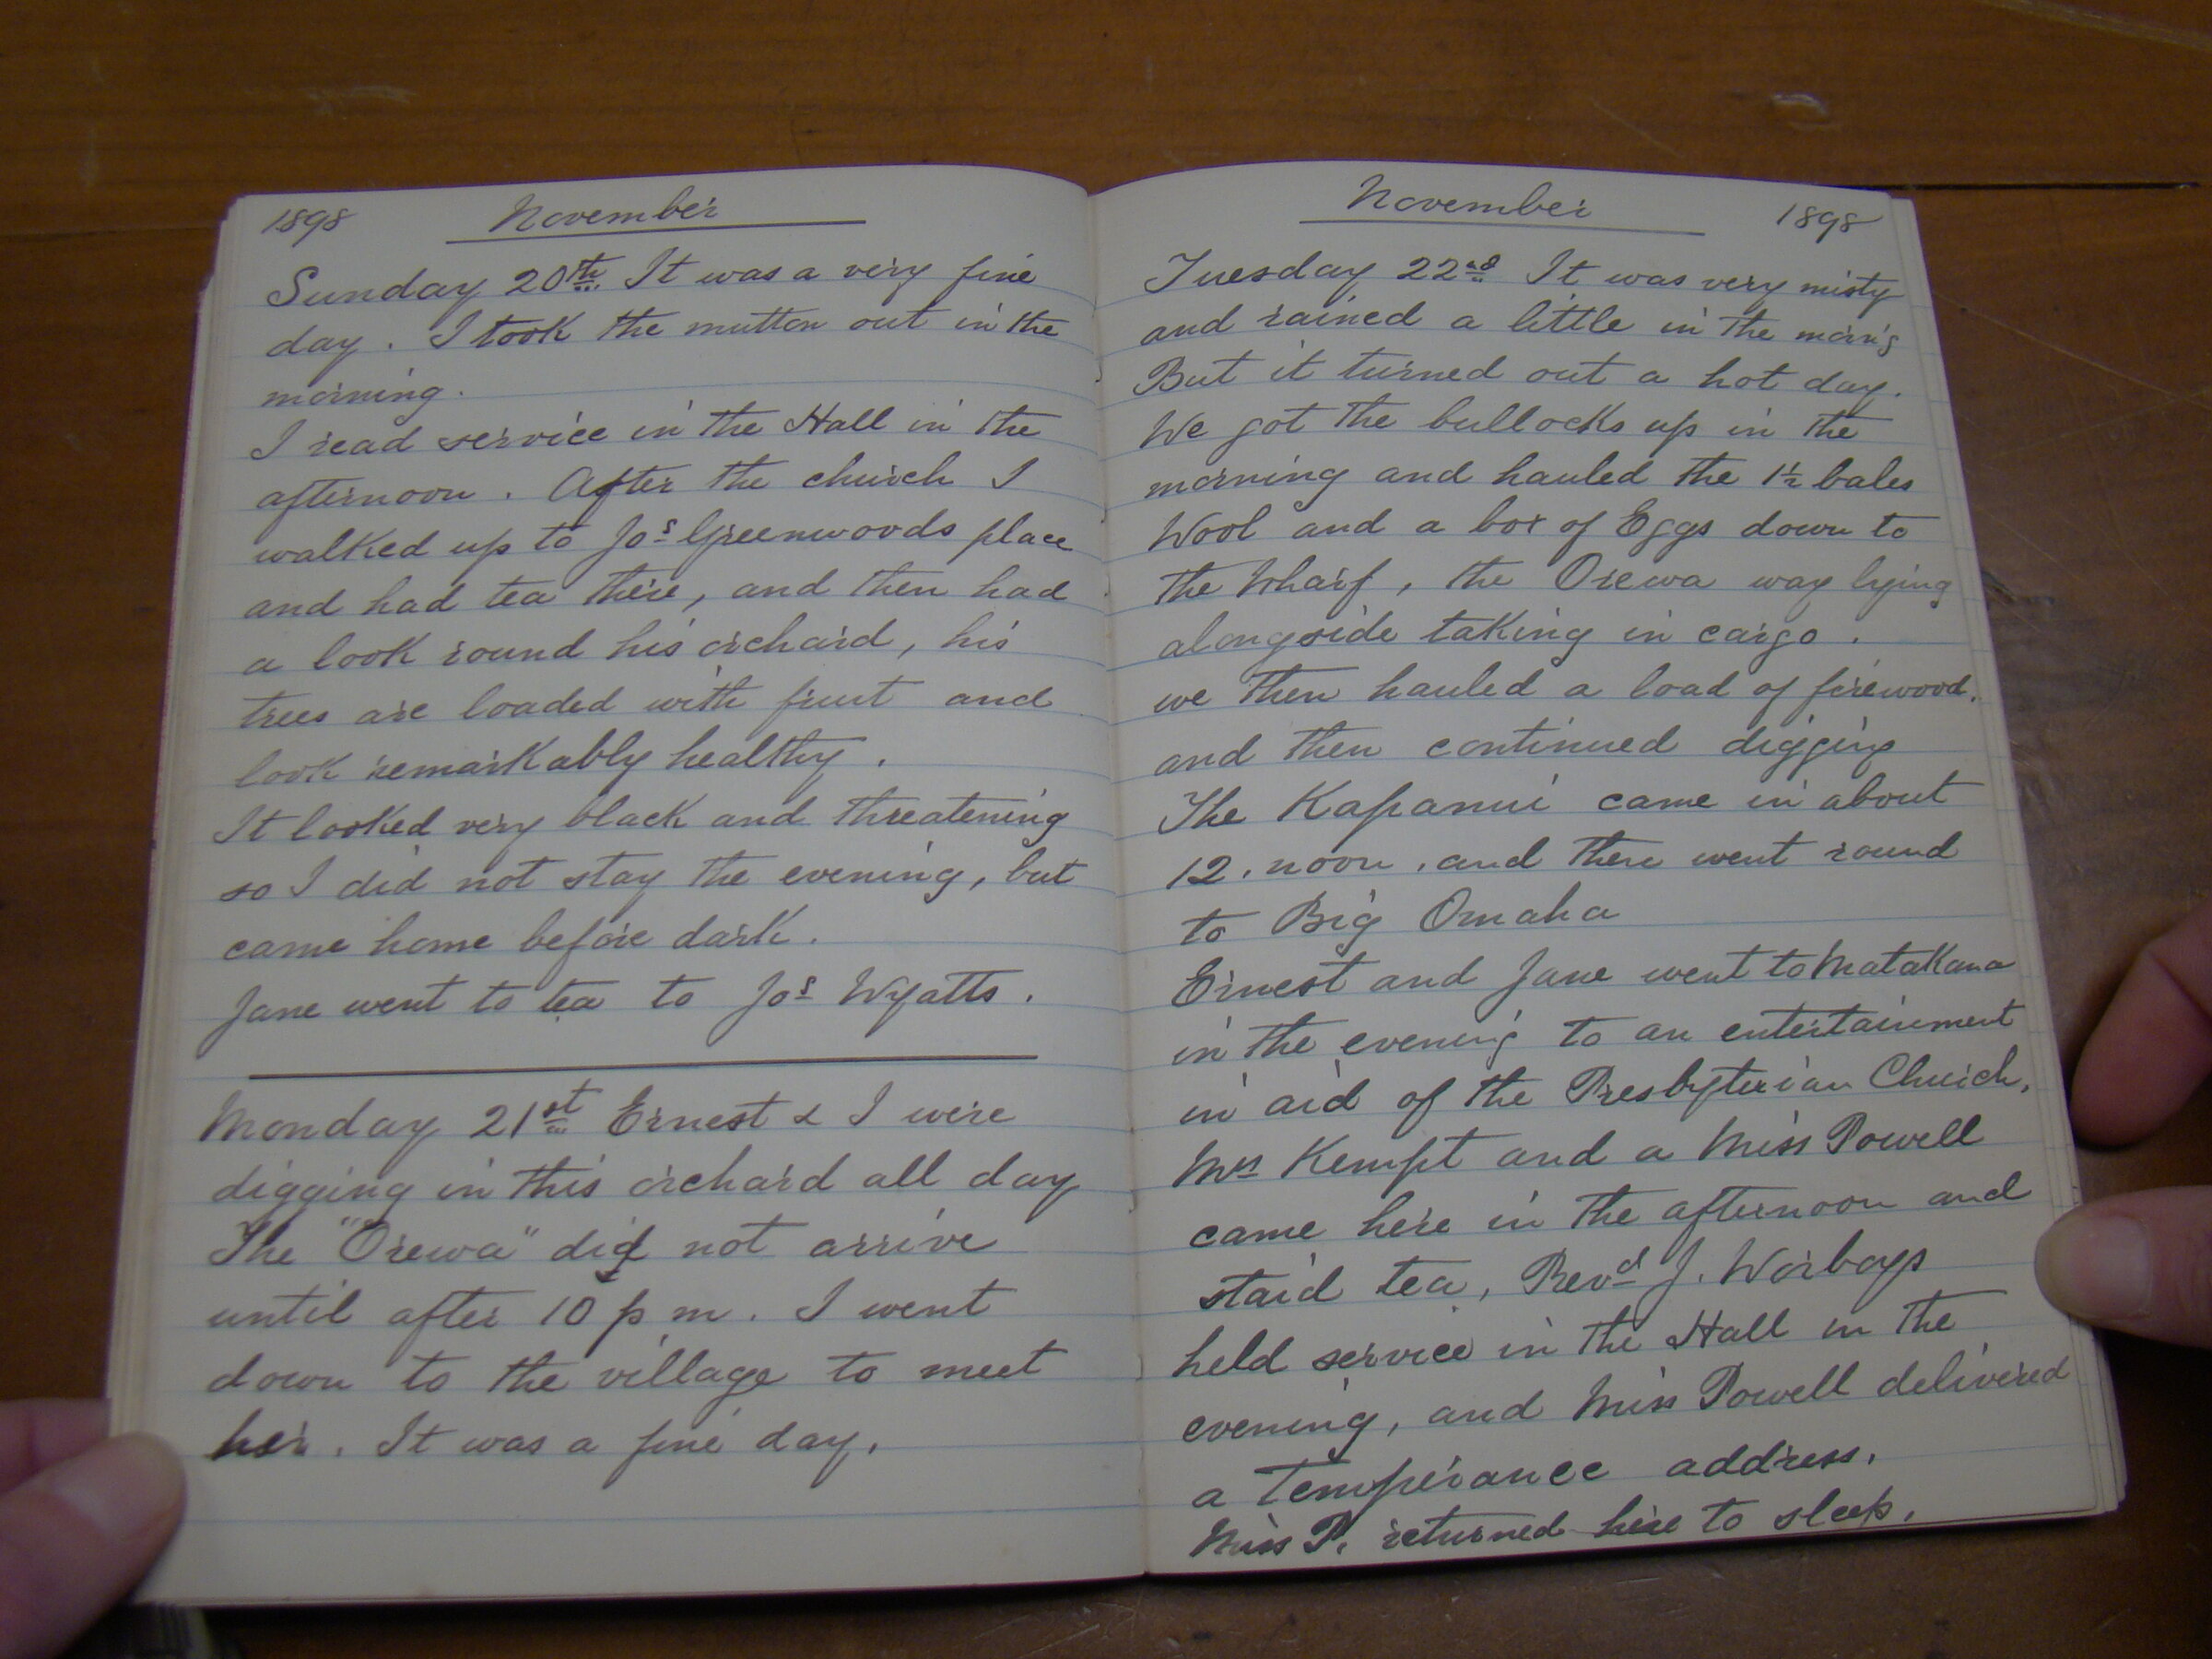 1898 November
Sunday 20th It was a very fine
day. I took the mutton out in the
morning.
I read service in the Hall in the
afternoon. After the church I
walked up to Jos Greenwoods place
and had tea there, and then had
a look round his orchard, his
trees are loaded with fruit and
look remarkably healthy.
It looked very black and threatening
so I did not stay the evening, but
came home before dark.
Jane went to tea to Jos Wyatts.
Monday 21st Ernest & I were
digging in this orchard all day
The "Orewa" did not arrive
until after 10 p m. I went
down to the village to meet
her. It was a fine day.
November 1898
Tuesday 22nd It was very misty
and rained a little in the morn'g
But it turned out a hot day.
We got the bullocks up in the
morning and hauled the 1½ bales
Wool and a box of Eggs down to
the Wharf, the Orewa way lying
alongside taking in cargo.
we then hauled a load of firewood.
and then continued digging
The Kapanui came in about
12. noon. and then went round
to Big Omaha
Ernest and Jane went to Matakana
in the evening to an entertainment
in aid of the Presbyterian Church.
Mrs Kempt and a Miss Powell
came here in the afternoon and
staid tea, Revd J. Worboys
held service in the Hall in the
evening, and Miss Powell delivered
a Temperance address.
Miss P. returned here to sleep.